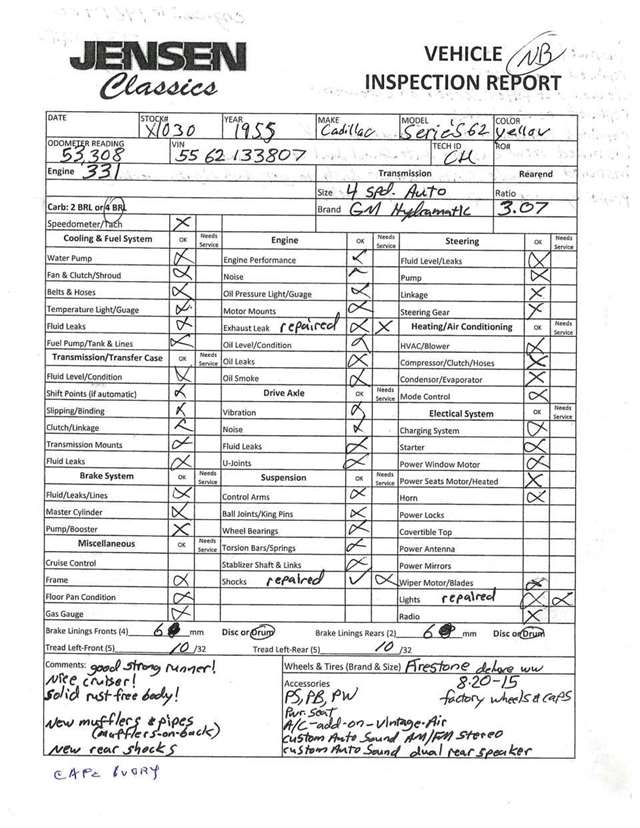 JENSEN
Classics
VEHICLE NB
INSPECTION REPORT
DATE STOCK# X1030 YEAR 1955 MAKE Cadillac MODEL Series 62 COLOR yellow
ODOMETER READING 53,308 VIN 5562133807 TECH ID CH RO#
Engine 331 Transmission Rearend
Size 4 spd. Auto Ratio
Carb: 2 BRL or 4 BRL Brand GM Hydramatic 3.07
Speedometer/Tach X
Cooling & Fuel System OK Needs Service Engine OK Needs Service Steering OK Needs Service
Water Pump X Engine Performance Fluid Level/Leaks X
Fan & Clutch/Shroud X Noise Pump X
Belts & Hoses X Oil Pressure Light/Guage X Linkage X
Temperature Light/Guage X Motor Mounts X Steering Gear X
Fluid Leaks X Exhaust Leak repaired X X Heating/Air Conditioning OK Needs Service
Fuel Pump/Tank & Lines X Oil Level/Condition X HVAC/Blower X
Transmission/Transfer Case OK Needs Service Oil Leaks X Compressor/Clutch/Hoses X
Fluid Level/Condition X Oil Smoke X Condensor/Evaporator X
Shift Points (if automatic) X Drive Axle OK Needs Service Mode Control X
Slipping/Binding X Vibration X Electical System OK Needs Service
Clutch/Linkage X Noise X Charging System X
Transmission Mounts X Fluid Leaks X Starter X
Fluid Leaks X U-Joints X Power Window Motor X
Brake System OK Needs Service Suspension OK Needs Service Power Seats Motor/Heated X
Fluid/Leaks/Lines X Control Arms X Horn X
Master Cylinder X Ball Joints/King Pins X Power Locks
Pump/Booster X Wheel Bearings X Covertible Top
Miscellaneous OK Needs Service Torsion Bars/Springs X Power Antenna
Cruise Control Stablizer Shaft & Links X Power Mirrors
Frame X Shocks repaired ✓ X Wiper Motor/Blades X
Floor Pan Condition X Lights repaired X X
Gas Gauge X Radio X
Brake Linings Fronts (4) 6 mm Disc or Drum Brake Linings Rears (2) 6 mm Disc or Drum
Tread Left-Front (5) 10 /32 Tread Left-Rear (5) 10 /32
Comments: good strong runner! Wheels & Tires (Brand & Size) Firestone deluxe ww
Nice cruiser! Accessories 8:20-15
Solid rust free body! PS, PB, PW factory wheels & caps
Pwr. Seat
New mufflers & pipes A/C-add-on-Vintage-Air
(mufflers-on-back) custom Auto Sound AM/FM Stereo
New rear shocks custom Auto Sound dual rear speaker
CAPE IVORY